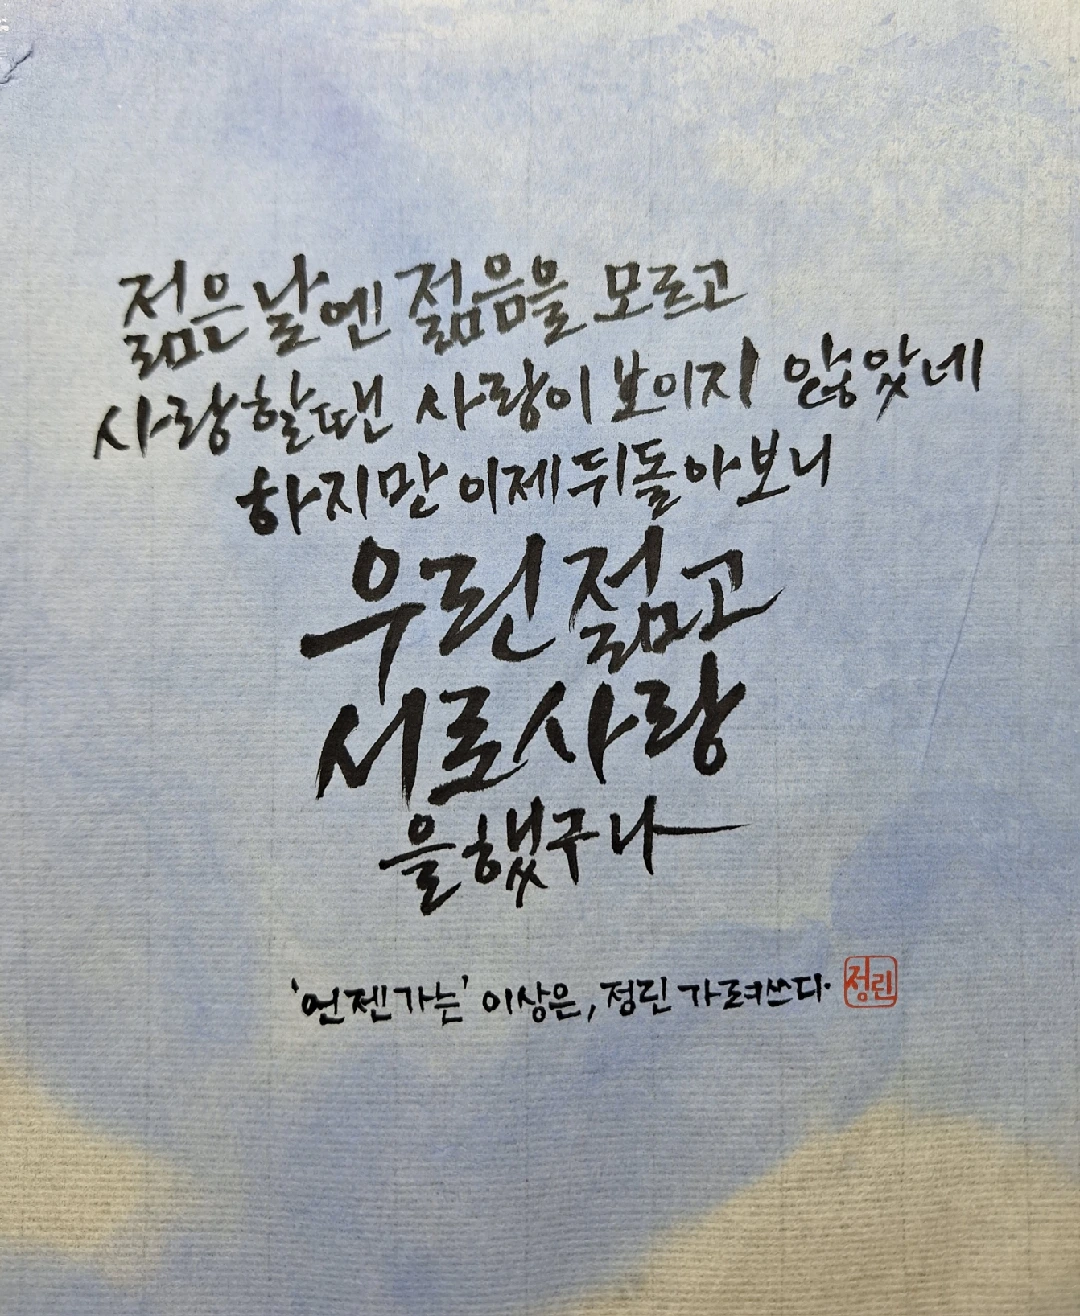 젊은 날엔 젊음을 모르고
사랑할땐 사랑이 보이지 않았네
하지만 이제 뒤돌아보니
우린 젊고
서로 사랑
을 했구나
'언젠가는' 이상은, 정린 가려쓰다.
정린